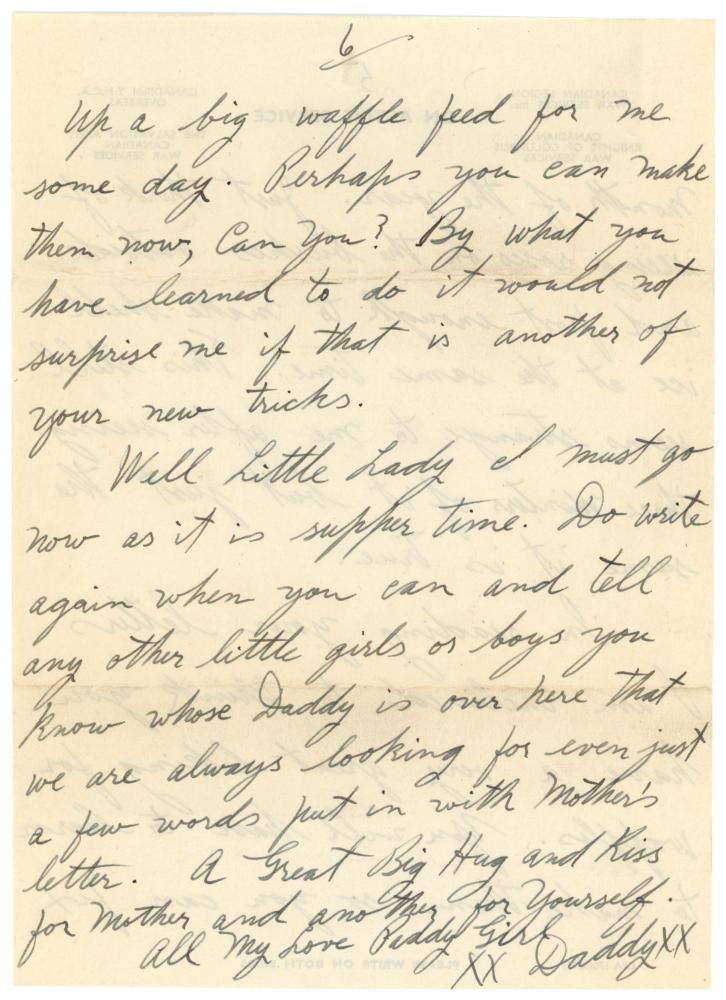 6
up a big waffle feed for me
some day. Perhaps you can make
them now, Can You? By what you
have learned to do it would not
surprise me if that is another of
your new tricks.
Well Little Lady I must go
now as it is supper time. Do write
again when you can and tell
any other little girls or boys you
know whose Daddy is over here that
we are always looking for even just
a few words put in with Mother's
letter. A Great Big Hug and Kiss
for Mother and another for Yourself.
All My Love Paddy Girl
XX Daddy XX